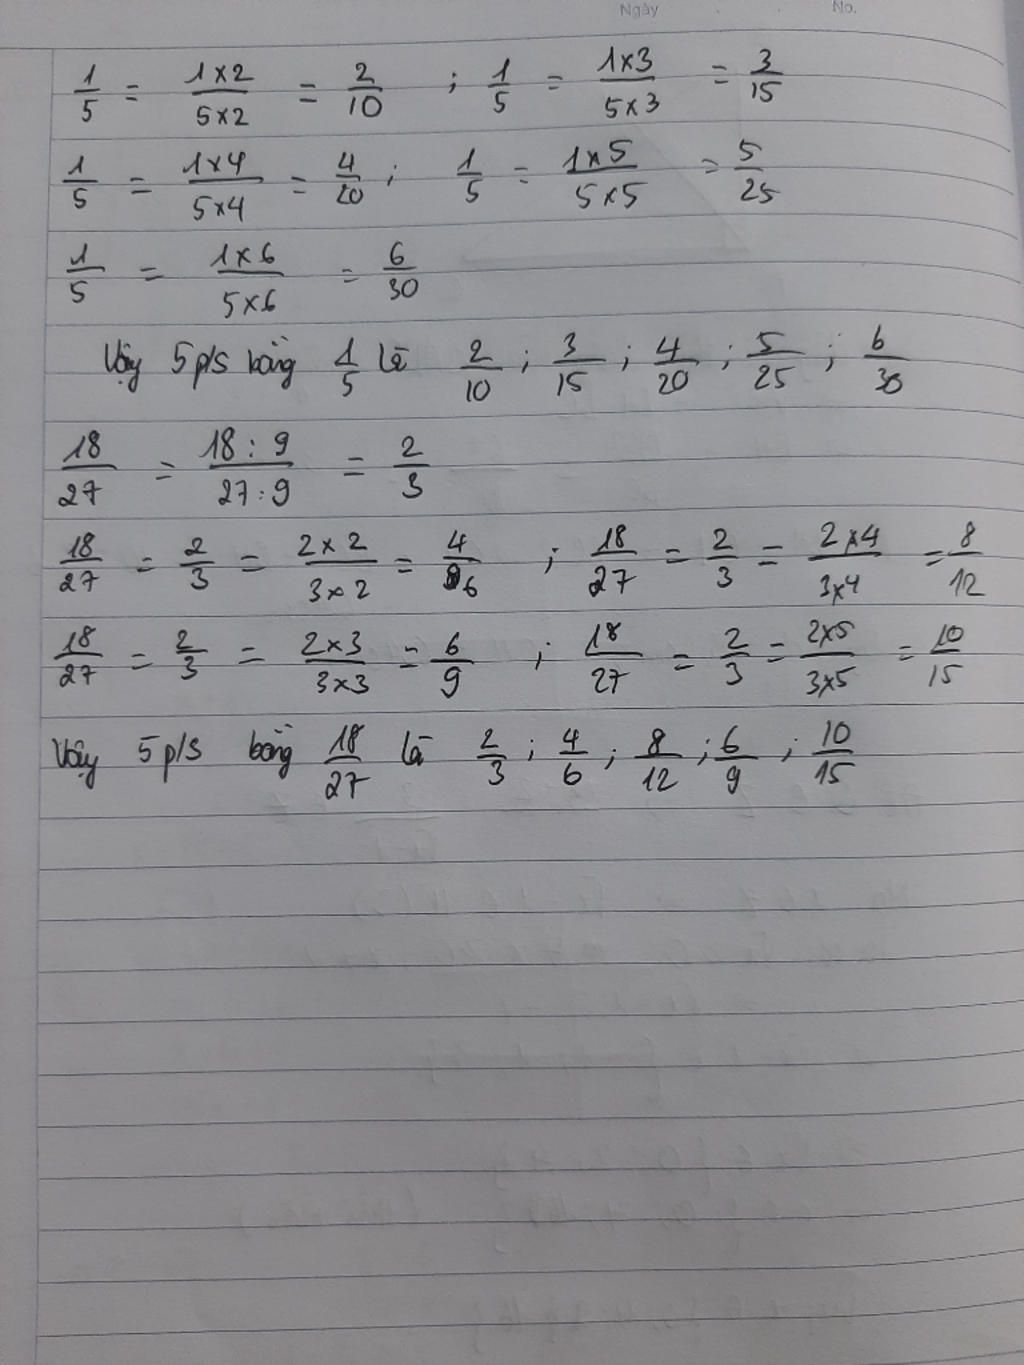 Ngày . . No.
1/5 = 1×2/5×2 = 2/10 ; 1/5 = 1×3/5×3 = 3/15
1/5 = 1×4/5×4 = 4/20 ; 1/5 = 1×5/5×5 = 5/25
1/5 = 1×6/5×6 = 6/30
Vậy 5 p/s bằng 1/5 là 2/10 ; 3/15 ; 4/20 ; 5/25 ; 6/30
18/27 = 18:9/27:9 = 2/3
18/27 = 2/3 = 2×2/3×2 = 4/6 ; 18/27 = 2/3 = 2×4/3×4 = 8/12
18/27 = 2/3 = 2×3/3×3 = 6/9 ; 18/27 = 2/3 = 2×5/3×5 = 10/15
Vậy 5 p/s bằng 18/27 là 2/3 ; 4/6 ; 8/12 ; 6/9 ; 10/15